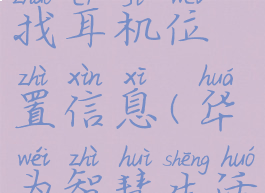 找耳机位
zhì xìn xī huá
置信息(华
wéi zhì huì shēng huó
为智慧生活